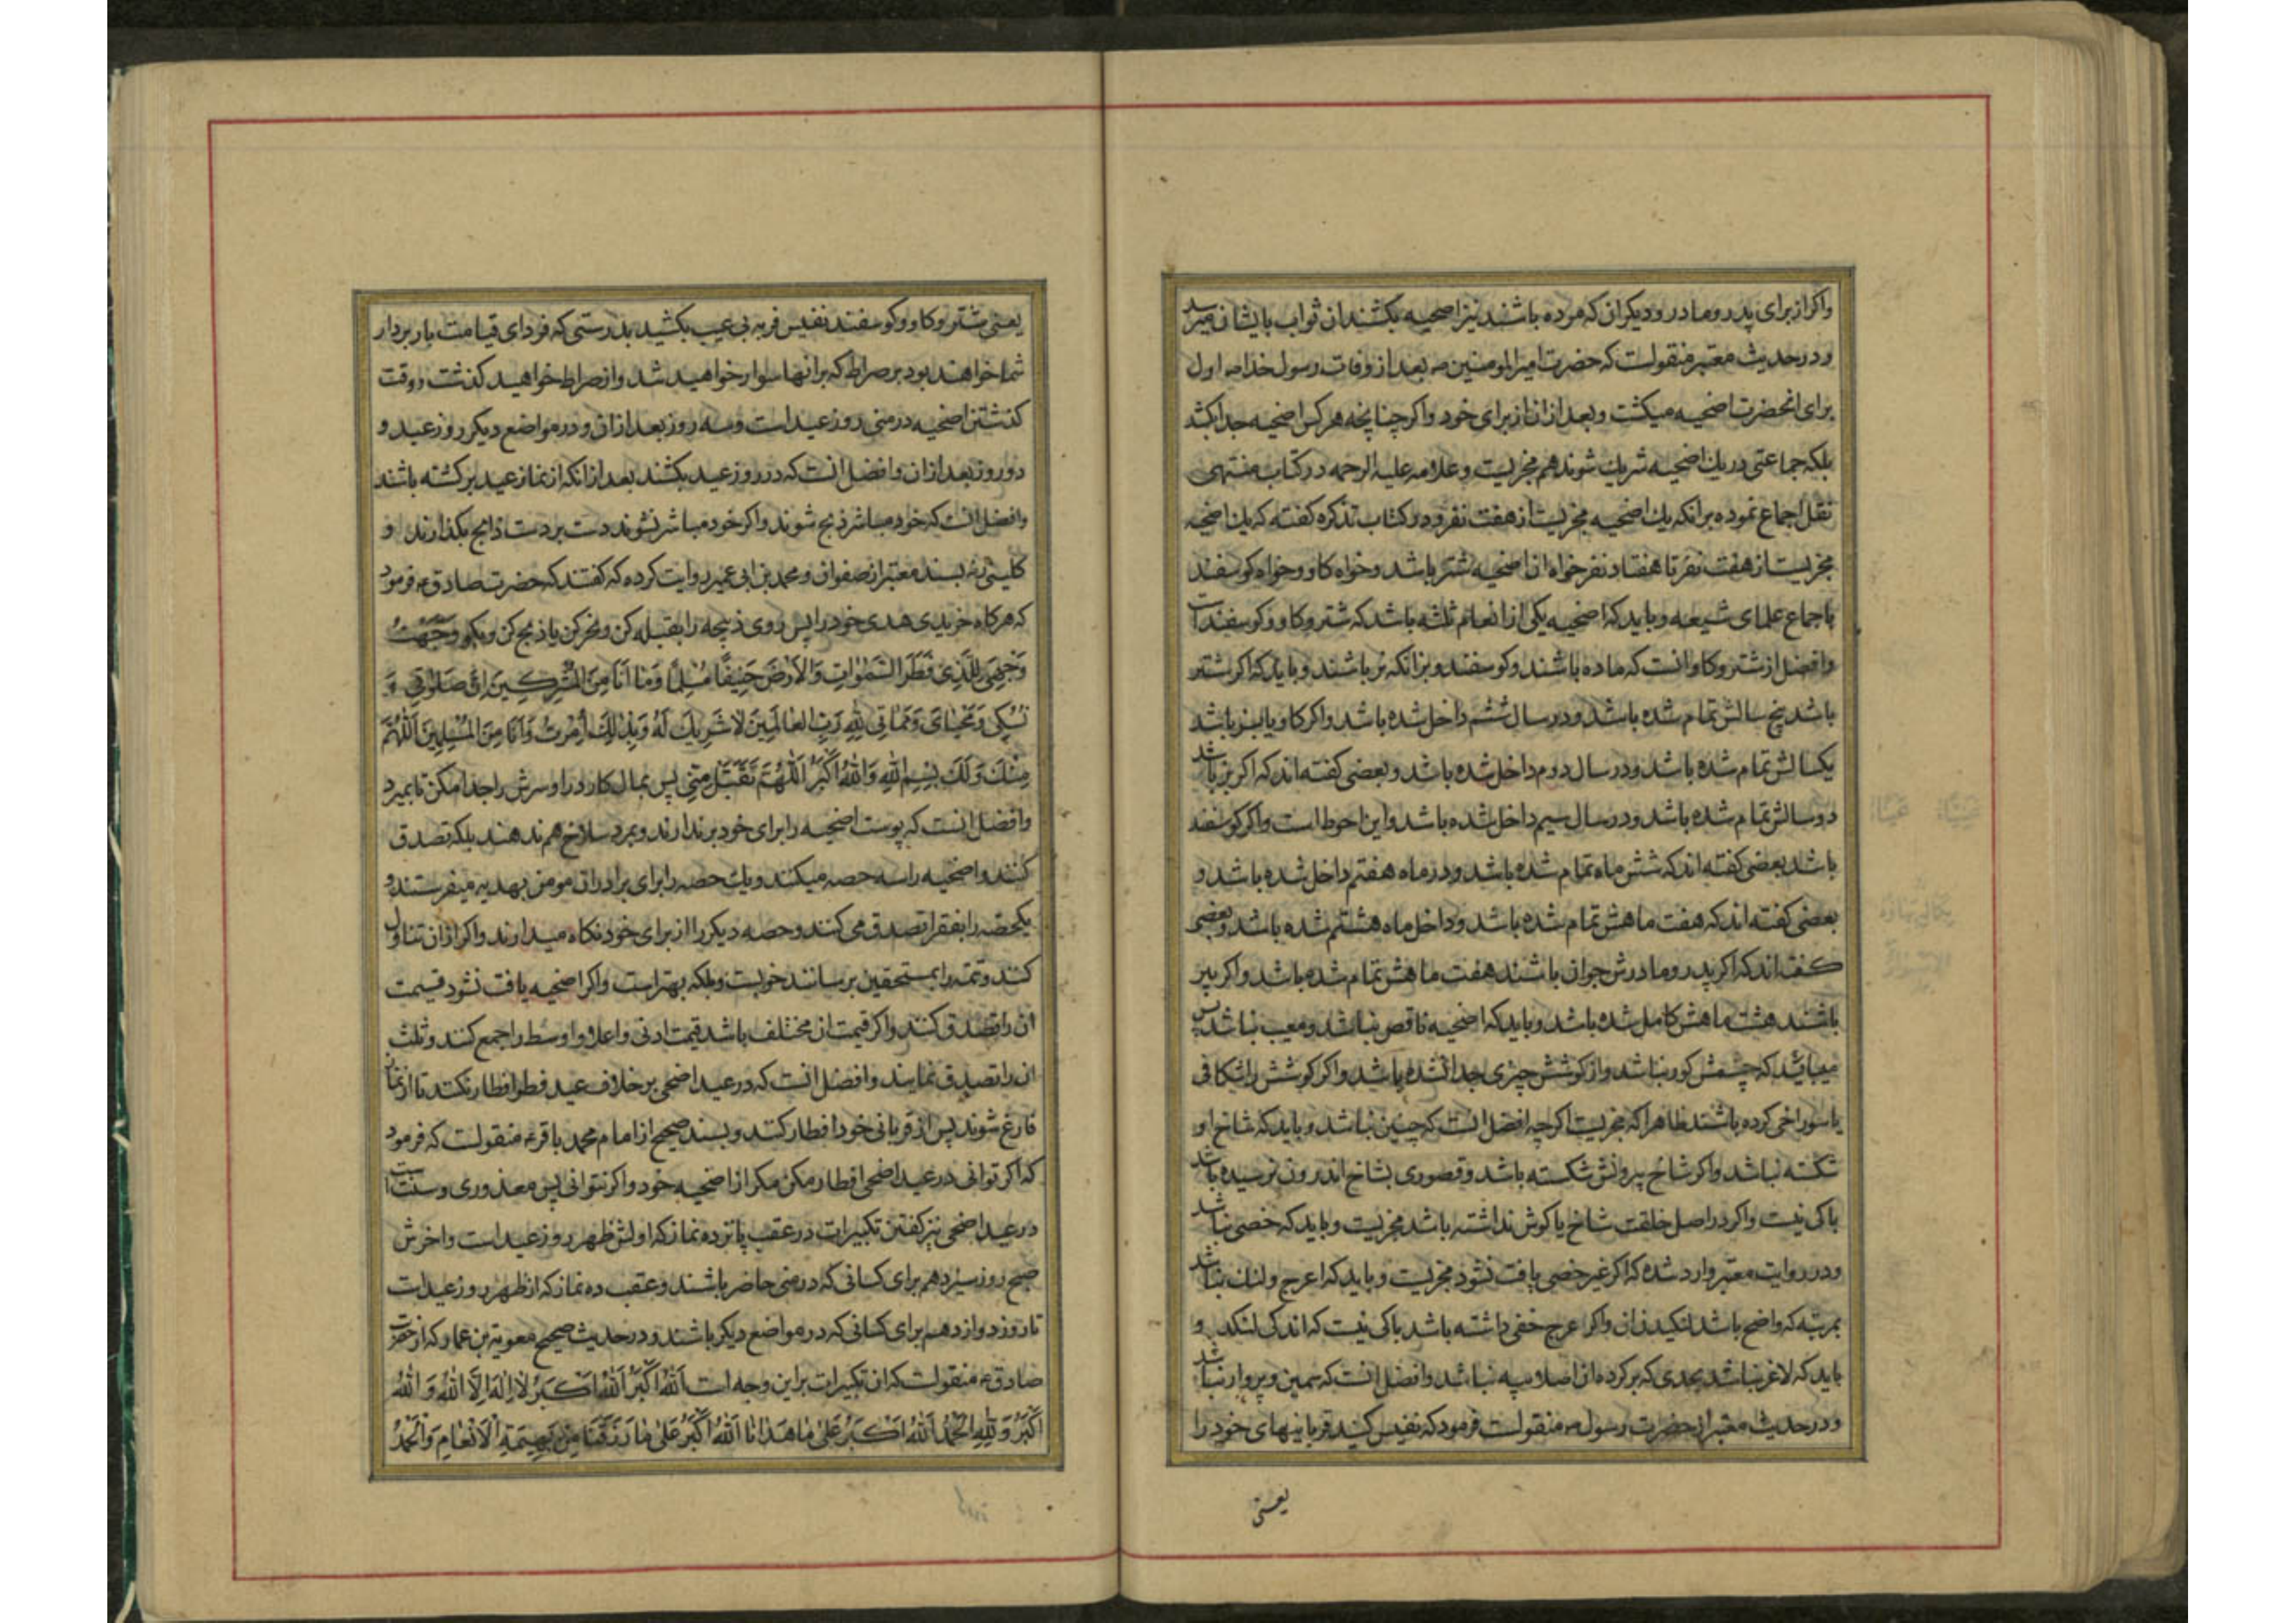 واکر از برای پدر و مادر و دیکران که مرده باشند نیز اضحیه بکشند ان ثواب بایشان میرسد
و در حدیث معتبر منقولست که حضرت امیرالمومنین ص بعد از وفات رسول خدا ص اول
برای انحضرت اضحیه میکشت و بعد از ان از برای خود و اکر چنانچه هر کس اضحیه جدا بکشد
بلکه جماعتی در یک اضحیه شریک شوند هم مجزیست و علامه علیه الرحمه در کتاب منتهی
نقل اجماع نموده بر انکه یک اضحیه مجزیست از هفت نفر و در کتاب تذکره کفته که یک اضحیه
مجزیست از هفت نفر تا هفتاد نفر خواه ان اضحیه شتر باشد و خواه کاو و خواه کوسفند
باجماع علمای شیعه و باید که اضحیه یکی از انعام ثلثه باشد که شتر و کاو و کوسفند است
و افضل از شتر و کاو انست که ماده باشند و کوسفند و بز انکه نر باشند و باید که اکر شتر
باشد پنج سالش تمام شده باشد و در سال ششم داخل شده باشد و اکر کاو یا بز باشد
یکسالش تمام شده باشد و در سال دوم داخل شده باشد و بعضی کفته اند که اکر بز باشد
دو سالش تمام شده باشد و در سال سیم داخل شده باشد و این احوط است و اکر کوسفند
باشد بعضی کفته اند که شش ماه تمام شده باشد و در ماه هفتم داخل شده باشد و
بعضی کفته اند که هفت ماهش تمام شده باشد و داخل ماه هشتم شده باشد و بعضی
کفته اند که اکر پدر و مادرش جوان باشند هفت ماهش تمام شده باشد و اکر پیر
باشند هشت ماهش کامل شده باشد و باید که اضحیه ناقص نباشد و معیب نباشد پس
میباید که چشمش کور نباشد و از کوشش چیزی جدا نشده باشد و اکر کوشش را شکافی
یا سوراخی کرده باشند ظاهرا که مجزیست اکرچه افضل انست که چنین نباشد و باید که شاخ او
شکسته نباشد و اکر شاخ بیرونش شکسته باشد و قصوری بشاخ اندرون نرسیده باشد
باکی نیست و اکر در اصل خلقت شاخ یا کوش نداشته باشد مجزیست و باید که خصی نباشد
و در روایت معتبر وارد شده که اکر غیر خصی یافت نشود مجزیست و باید که اعرج و لنک نباشد
بمرتبه که واضح باشد لنکیدن ان و اکر اعرج خفی داشته باشد باکی نیست که اندکی لنکد و
باید که لاغر نباشد بحدی که بر کرده ان اصلا پیه نباشد و افضل انست که سمین و پروار نباشد
و در حدیث معتبر از حضرت رسول ص منقولست فرمود که نفیس کنید قربانیهای خود را
یعنی
یعنی شتر و کاو و کوسفند نفیس فربه بی عیب بکشید بدرستی که فردای قیامت باربردار
شما خواهند بود بر صراط که بر انها سوار خواهید شد و از صراط خواهید کذشت و وقت
کذشتن اضحیه در منی روز عیدست و سه روز بعد از ان و در مواضع دیکر روز عید و
دو روز بعد از ان و افضل انست که در روز عید بکشند بعد از انکه از نماز عید برکشته باشند
و افضل انست که خود مباشر ذبح شوند و اکر خود مباشر نشوند دست بر دست ذابح بکذارند و
کلینی ره بسند معتبر از صفوان و محمد بن ابی عمیر روایت کرده که کفتند که حضرت صادق ع فرمود
که هرکاه خریدی هدی خود را پس روی ذبیحه را بقبله کن و نحر کن یا ذبح کن و بکو وَجَّهْتُ
وَجْهِیَ لِلَّذِی فَطَرَ السَّمٰوَاتِ وَالْاَرْضَ حَنِیفًا مُسْلِمًا وَمَا اَنَا مِنَ الْمُشْرِکِینَ اِنَّ صَلٰوتِی وَ
نُسُکِی وَمَحْیَایَ وَمَمَاتِی لِلّٰهِ رَبِّ الْعَالَمِینَ لَا شَرِیکَ لَهُ وَبِذٰلِکَ اُمِرْتُ وَاَنَا مِنَ الْمُسْلِمِینَ اَللّٰهُمَّ
مِنْکَ وَلَکَ بِسْمِ اللّٰهِ وَاللّٰهُ اَکْبَرُ اَللّٰهُمَّ تَقَبَّلْ مِنِّی پس بمال کارد را و سرش را جدا مکن تا بمیرد
و افضل انست که پوست اضحیه را برای خود برندارند و بمزد سلاخ هم ندهند بلکه تصدق
کنند و اضحیه را سه حصه میکنند و یک حصه را برای برادران مومن بهدیه میفرستند و
یکحصه را بفقرا تصدق می کنند و حصه دیکر را از برای خود نکاه میدارند و اکر از ان تناول
کنند و تتمه را بمستحقین برسانند خوبست و بلکه بهتر است و اکر اضحیه یافت نشود قیمت
ان را تصدق کنند و اکر قیمت ان مختلف باشد قیمت ادنی و اعلا و اوسط را جمع کنند و ثلث
ان را تصدق نمایند و افضل انست که در عید اضحی بر خلاف عید فطر افطار نکند تا از نماز
فارغ شوند پس از قربانی خود افطار کنند و بسند صحیح از امام محمد باقر ع منقولست که فرمود
که اکر توانی در عید اضحی افطار مکن مکر از اضحیه خود و اکر نتوانی پس معذوری و سنت است
در عید اضحی نیز کفتن تکبیرات در عقب پانزده نماز که اولش ظهر روز عید است و اخرش
صبح روز سیزدهم برای کسانی که در منی حاضر باشند و عقب ده نماز که از ظهر روز عید است
تا روز دوازدهم برای کسانی که در مواضع دیکر باشند و در حدیث صحیح معویة بن عمار که از حضرت
صادق ع منقولست که ان تکبیرات بر این وجه است اَللّٰهُ اَکْبَرُ اَللّٰهُ اَکْبَرُ لَا اِلٰهَ اِلَّا اللّٰهُ وَاللّٰهُ
اَکْبَرُ وَلِلّٰهِ الْحَمْدُ اَللّٰهُ اَکْبَرُ عَلٰی مَا هَدَانَا اَللّٰهُ اَکْبَرُ عَلٰی مَا رَزَقَنَا مِنْ بَهِیمَةِ الْاَنْعَامِ وَالْحَمْدُ